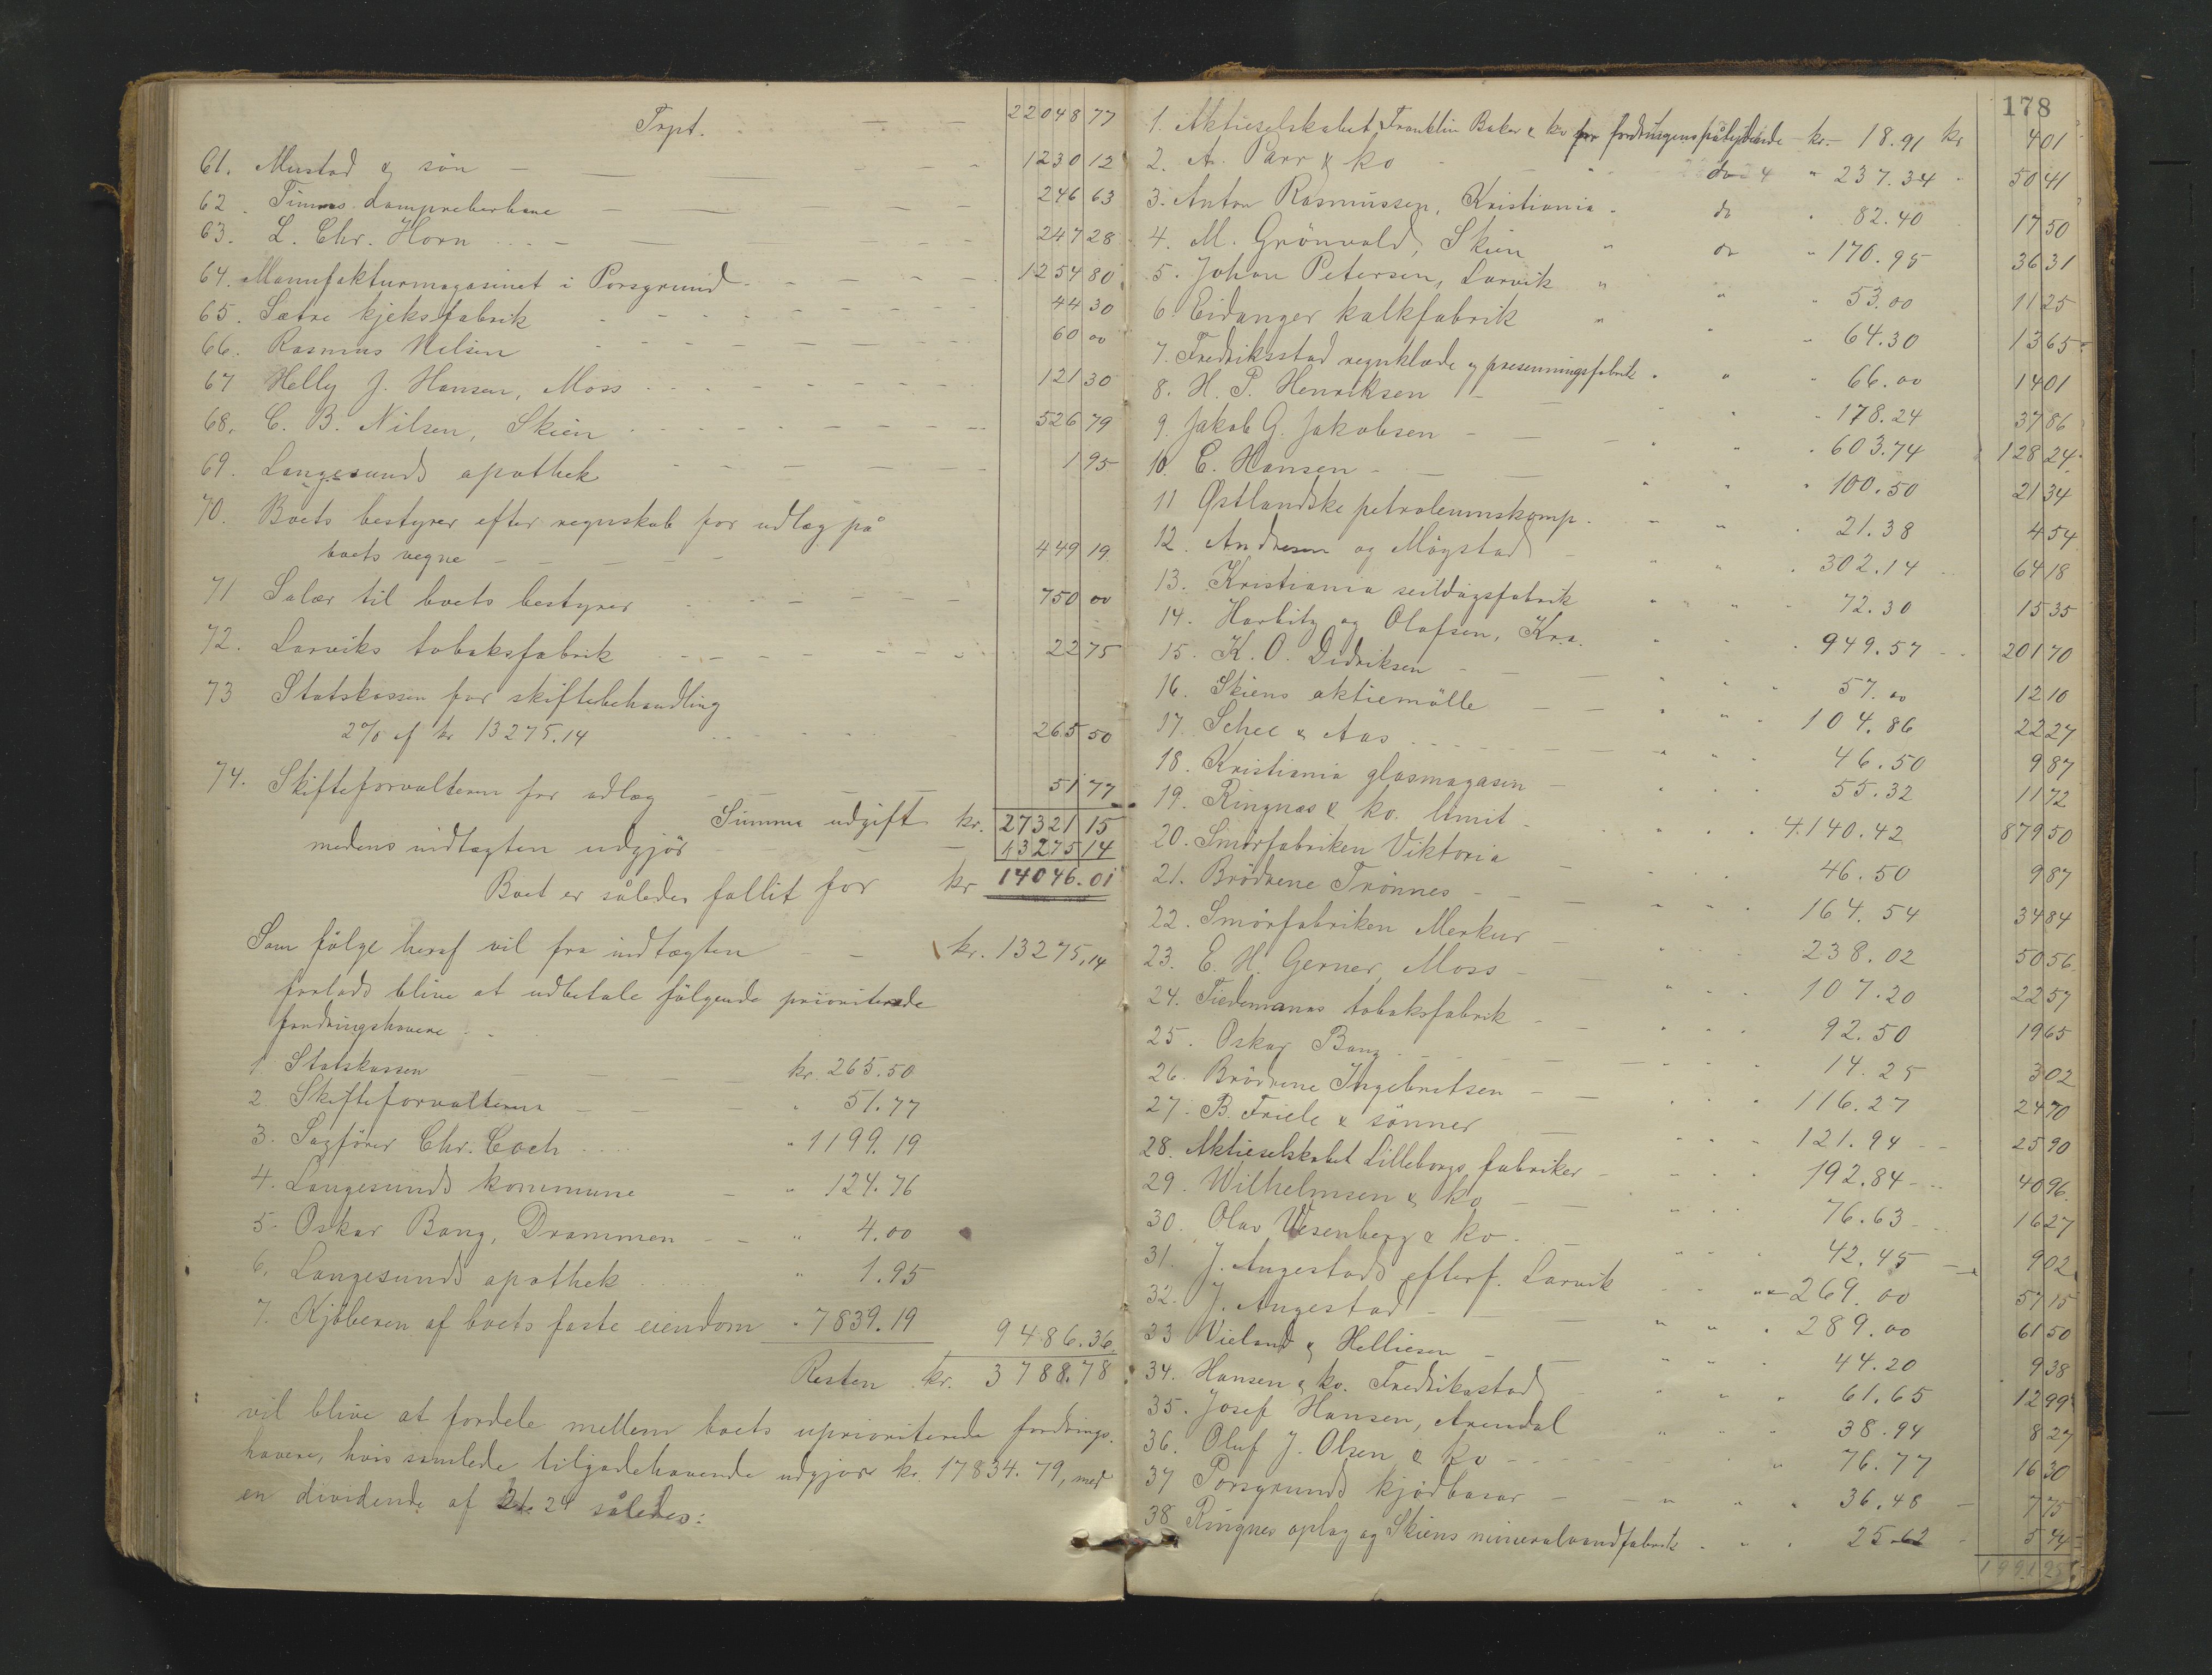 Trpt. 22048 77
61. Mustad & søn 1230 12
62. Timms dampreberbane 246 63
63. L. Chr. Horn 247 28
64. Manufakturmagasinet i Porsgrund 1254 80
65. Sætre kjeksfabrik 44 30
66. Rasmus Nilsen 60 00
67 Helly J. Hansen, Moss 121 30
68. C. B. Nilsen, Skien 526 79
69. Langesunds apothek 1 95
70. Boets bestyrer efter regnskab for udlæg på
boets vegne 449 19
71 Salær til boets bestyrer 750 00
72. Larviks tobaksfabrik 22 75
73 Statskassen for skiftebehandling
2% af kr 13275.14 265 50
74. Skifteforvalteren for udlæg 51 77
Summa udgift kr. 27321 15
medens indtægten udgjör 13275 14
Boet er således fallit for kr 14046.01
Som fölge heraf vil fra indtægten kr. 13275,14
forlods blive at udbetale fölgende prioriterede
fordringshavere
1. Statskassen kr. 265.50
2 Skifteforvalteren " 51.77
3. Sagförer Chr. Coch " 1199.19
4. Langesunds kommune " 124.76
5. Oskar Bang, Drammen " 4.00
6. Langesunds apothek " 1.95
7. Kjöberen af boets faste eiendom " 7839.19 9486.36
Resten kr. 3788.78
vil blive at fordele mellem boets uprioriterede fordrings-
havere, hvis samlede tilgodehavende udgjör kr. 17834.79, med
en dividende af 21.24 således:
178
1. Aktieselskabet Franklin Baker & ko for fordringens pålydende kr. 18.91 kr 4 01
2. A. Parr & ko do " 237.34 50 41
3. Anton Rasmussen, Kristiania do " 82.40 17 50
4. M. Grönvold, Skien " do " 170.95 36 31
5. Johan Petersen, Larvik " " " 53.00 11 25
6 Eidanger kalkfabrik " " " 64.30 13 65
7. Fredriksstad regnklæde og presenningsfabrik " " " 66.00 14 01
8. H. P. Henriksen " " 178.24 37 86
9. Jakob G. Jakobsen " " " 603.74 128 24
10. C. Hansen " " " 100.50 21 34
11 Østlandske petroleumskomp. " " 21.38 4 54
12. Andresen og Mögstad " " " 302.14 64 18
13. Kristiania seildugsfabrik " " " 72.30 15 35
14. Harbitz og Olafsen, Kra. " " " 949.57 201 70
15. K. O. Didriksen " " " 57.00 12 10
16. Skiens aktiemölle " " " 104.86 22 27
17. Schee & Aas " " " 46.50 9 87
18. Kristiania glasmagasin " " " 55.32 11 72
19. Ringnæs & ko. limit " " " 4.140.42 879 50
20. Smörfabriken Viktoria " " " 46.50 9 87
21. Brödrene Trönnes " " " 164.54 34 84
22. Smörfabriken Merkur " " 238.02 50 56
23. E. H. Gerner, Moss " " " 107.20 22 57
24. Tiedemanns tobaksfabrik " " " 92.50 19 65
25. Oskar Bang " " " 14.25 3 02
26. Brödrene Ingebretsen " " " 116.27 24 70
27. B. Friele & sönner " " " 121.94 25 90
28. Aktieselskabet Lilleborgs fabriker " " " 192.84 40 96
29. Wilhelmsen & ko " " " 76.63 16 27
30. Olav Wesenberg & ko. " " " 42.45 9 02
31. J. Angestads efterf. Larvik " " " 269.00 57 15
32. J. Angestad " " " 289.00 61 50
33 Vieland & Helliesen " " " 44.20 9 38
34. Hansen & ko. Fredriksstad " " " 61.65 12 99
35. Josef Hansen, Arendal " " " 38.94 8 27
36. Oluf J. Olsen & ko " 76.77 16 30
37 Porsgrunds kjödbasar " " " 36.48 7 75
38 Ringnes oplag og Skiens mineralvandfabrik " " " 25.62 5 44